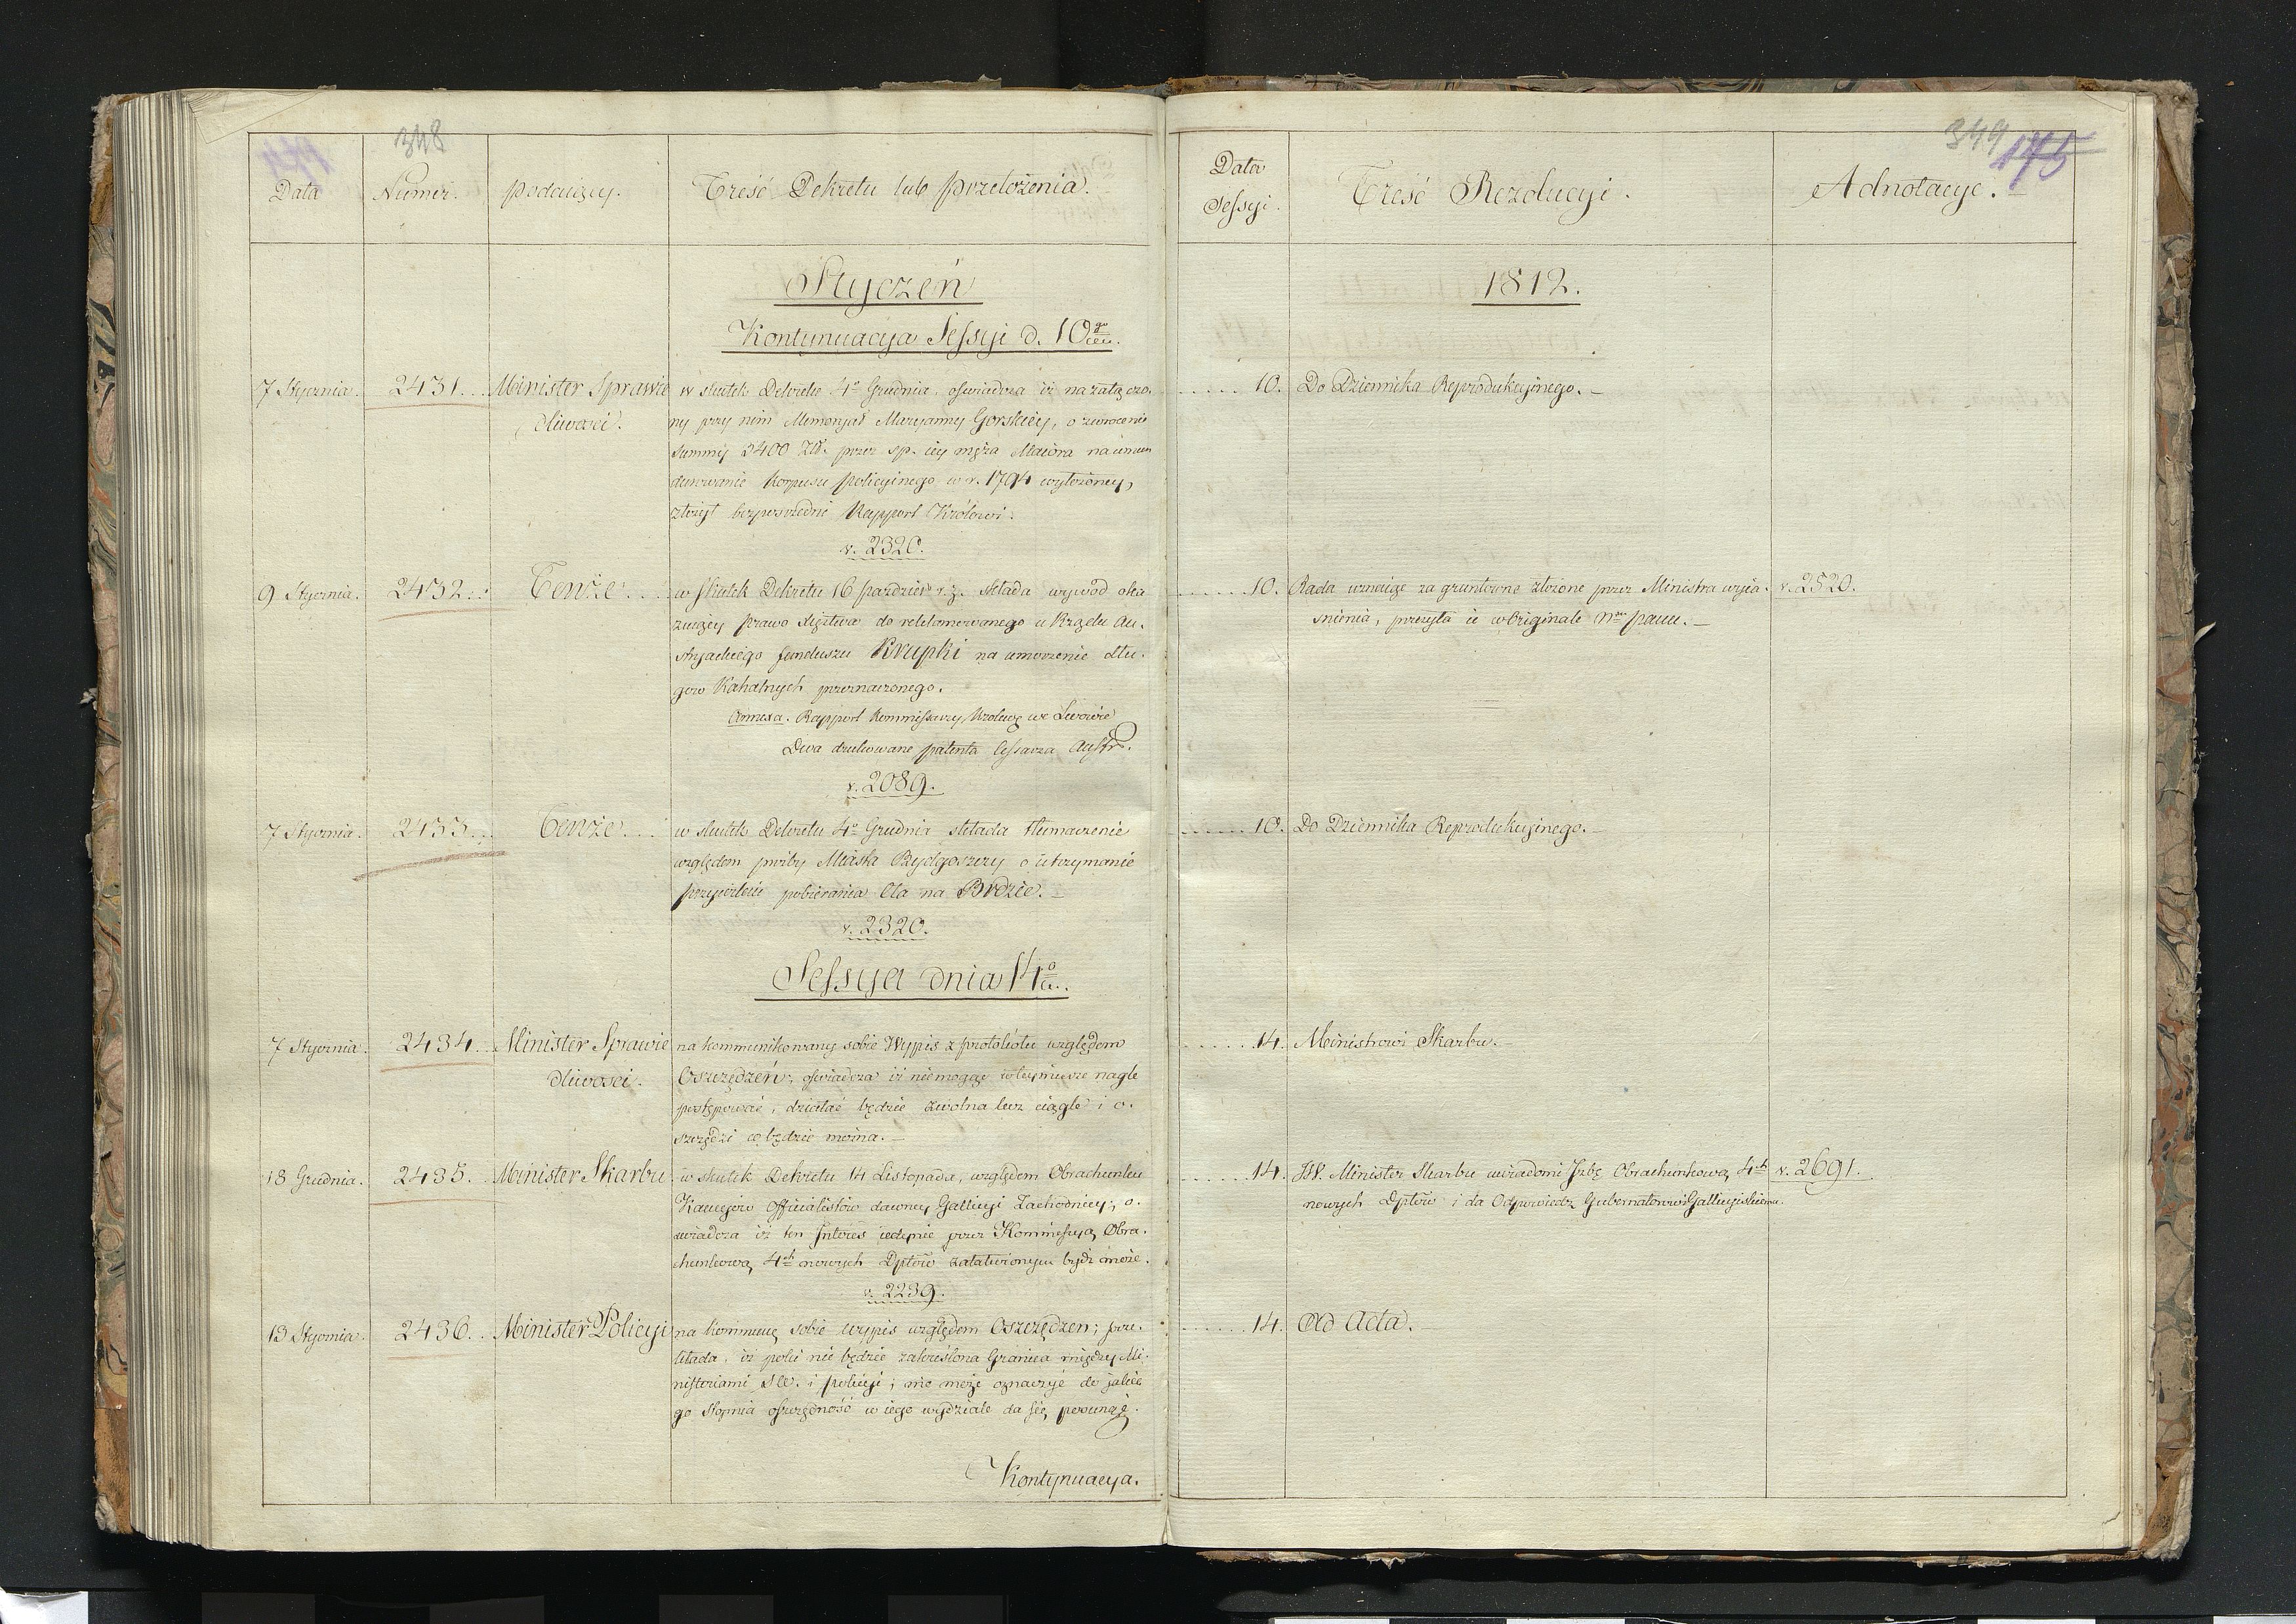 348
174
Data
Numer.
Podaiący.
Treść Dekretu lub przełożenia.
Styczeń
Kontynuacya Sessyi d. 10go
7 Stycznia.
2431...
Minister Sprawie
dliwosci.
w skutek Dekretu 4o Grudnia, oswiadcza iż na załączo.
ny przy nim Memoryał Maryanny Gorskiey, o zwrocenie
Summy 2400 Zł. przez sp. iey męża Maiora na umun
durowanie Korpusu policyinego w r. 1794 wyłożoney,
złożył bezposrednie Rapport Królowi.
v. 2320.
9 Stycznia.
2432...
Tenże....
w skutek Dekretu 16 paździer. r.z. składa wywód oka
zuiący prawo Xięztwa do reklamowanego u Rządu Au.
stryackiego funduszu Krupki na umorzenie dłu.
gow Kahalnych przeznaczonego.
Annexa. Rapport Kommissarzy Królews. we Lwowie
Dwa drukowane patenta Cesarza Austr.
v. 2089.
7 Stycznia.
2433...
Tenże....
w skutek Dekretu 4o Grudnia składa tłumaczenie
względem prośby Miasta Bydgoszczy o utrzymanie
przywileiu pobierania Cła na Brdzie.
v. 2320.
Sessya dnia 14o
7 Stycznia.
2434...
Minister Sprawie
dliwosci.
na kommunikowany sobie Wypis z protokółu względem
Oszczędzeń, oswiadcza iż niemogąc w tey mierze nagle
postępować, działać będzie zwolna lecz ciągle i o.
szczędzi co będzie można.
18 Grudnia.
2435.
Minister Skarbu
w skutek Dekretu 14 Listopada, względem Obrachunku
Kaucyów Officialistów dawney Gallicyi Zachodniey, o.
swiadcza iż ten Interes iedynie przez Kommissyą Obra.
chunkową 4ch nowych Dptów załatwionym bydź może.
v. 2239.
13 Stycznia.
2436...
Minister Policyi
na kommunę sobie wypis względem Oszczędzen; prze.
kłada, iż poki nie będzie zakreślona Granica między Mi.
nisteriami Sw. i policyi; nie może oznaczyć do jakie
go stopnia oszczędność w iego wydziale da się posunąć.
Kontynuacya.
349
175
Data
Sessyi.
Treść Rezolucyi.
Adnotacye.
1812.
......10.
Do Dziennika Reprodukcyinego.
......10.
Rada uznaiąc za gruntowne złożone przez Ministra wyia.
snienia, przesyła ie w Originale Nmu panu.
v. 2520.
......10.
Do Dziennika Reprodukcyinego.
......14.
Ministrowi Skarbu.
......14.
JW. Minister Skarbu uwiadomi Izbę Obrachunkową 4ch
nowych Dptów i da Odpowiedz Gubernatorowi Gallicyiskiemu.
v. 2691.
......14.
Ad Acta.